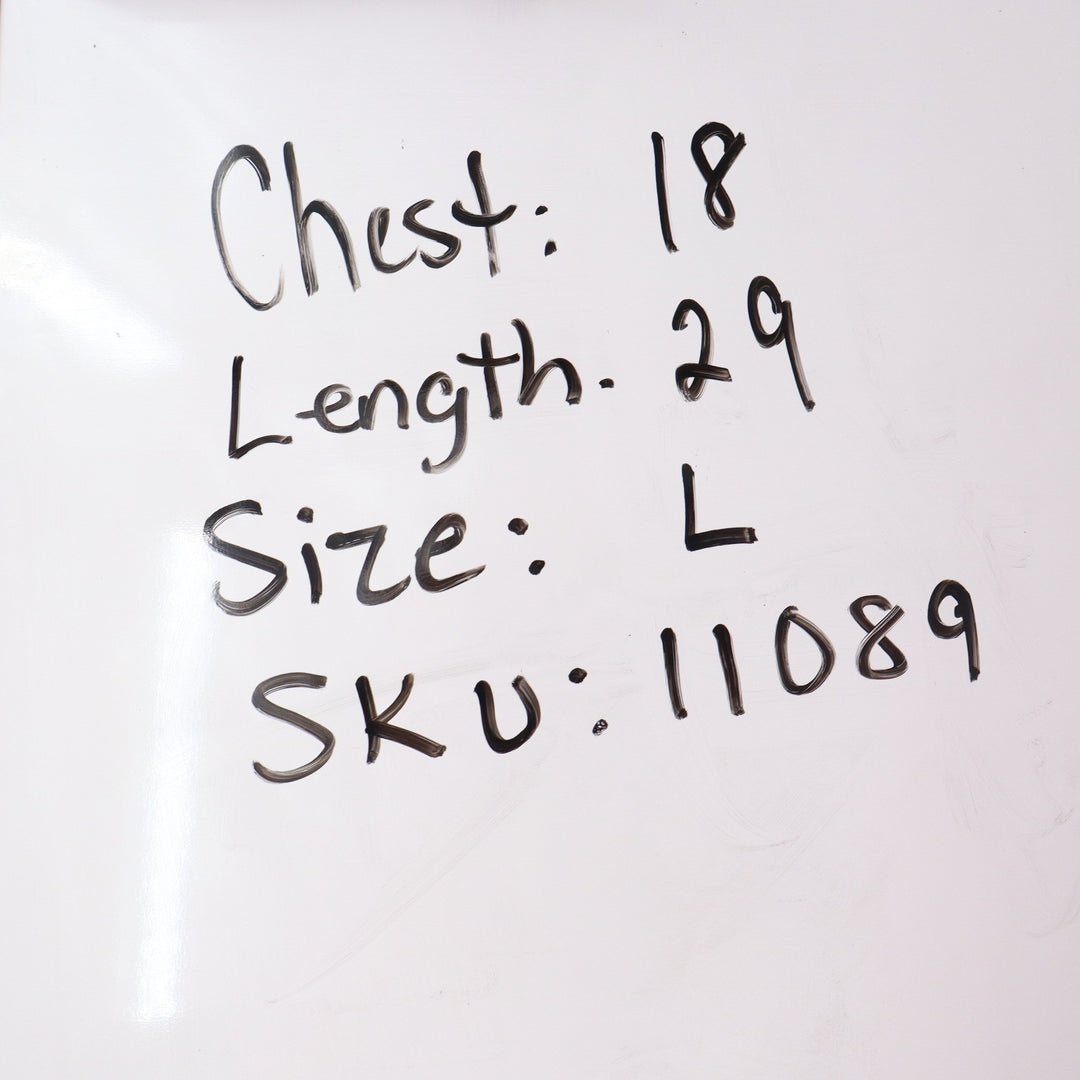 Chest: 18
Length. 29
Size: L
SKU: 11089